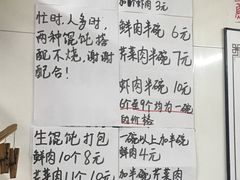 忙时.人多时,
两种馄饨搭
配不烧,谢谢
配合!
虾肉 3元
鲜肉半碗 6元
芹菜肉半碗 7元
虾肉半碗 10元
价至9个均为一碗
的价格
生馄饨打包
鲜肉10个8元
芹菜肉11个10元
一碗以上加半碗
鲜肉4元
加半碗芹菜肉